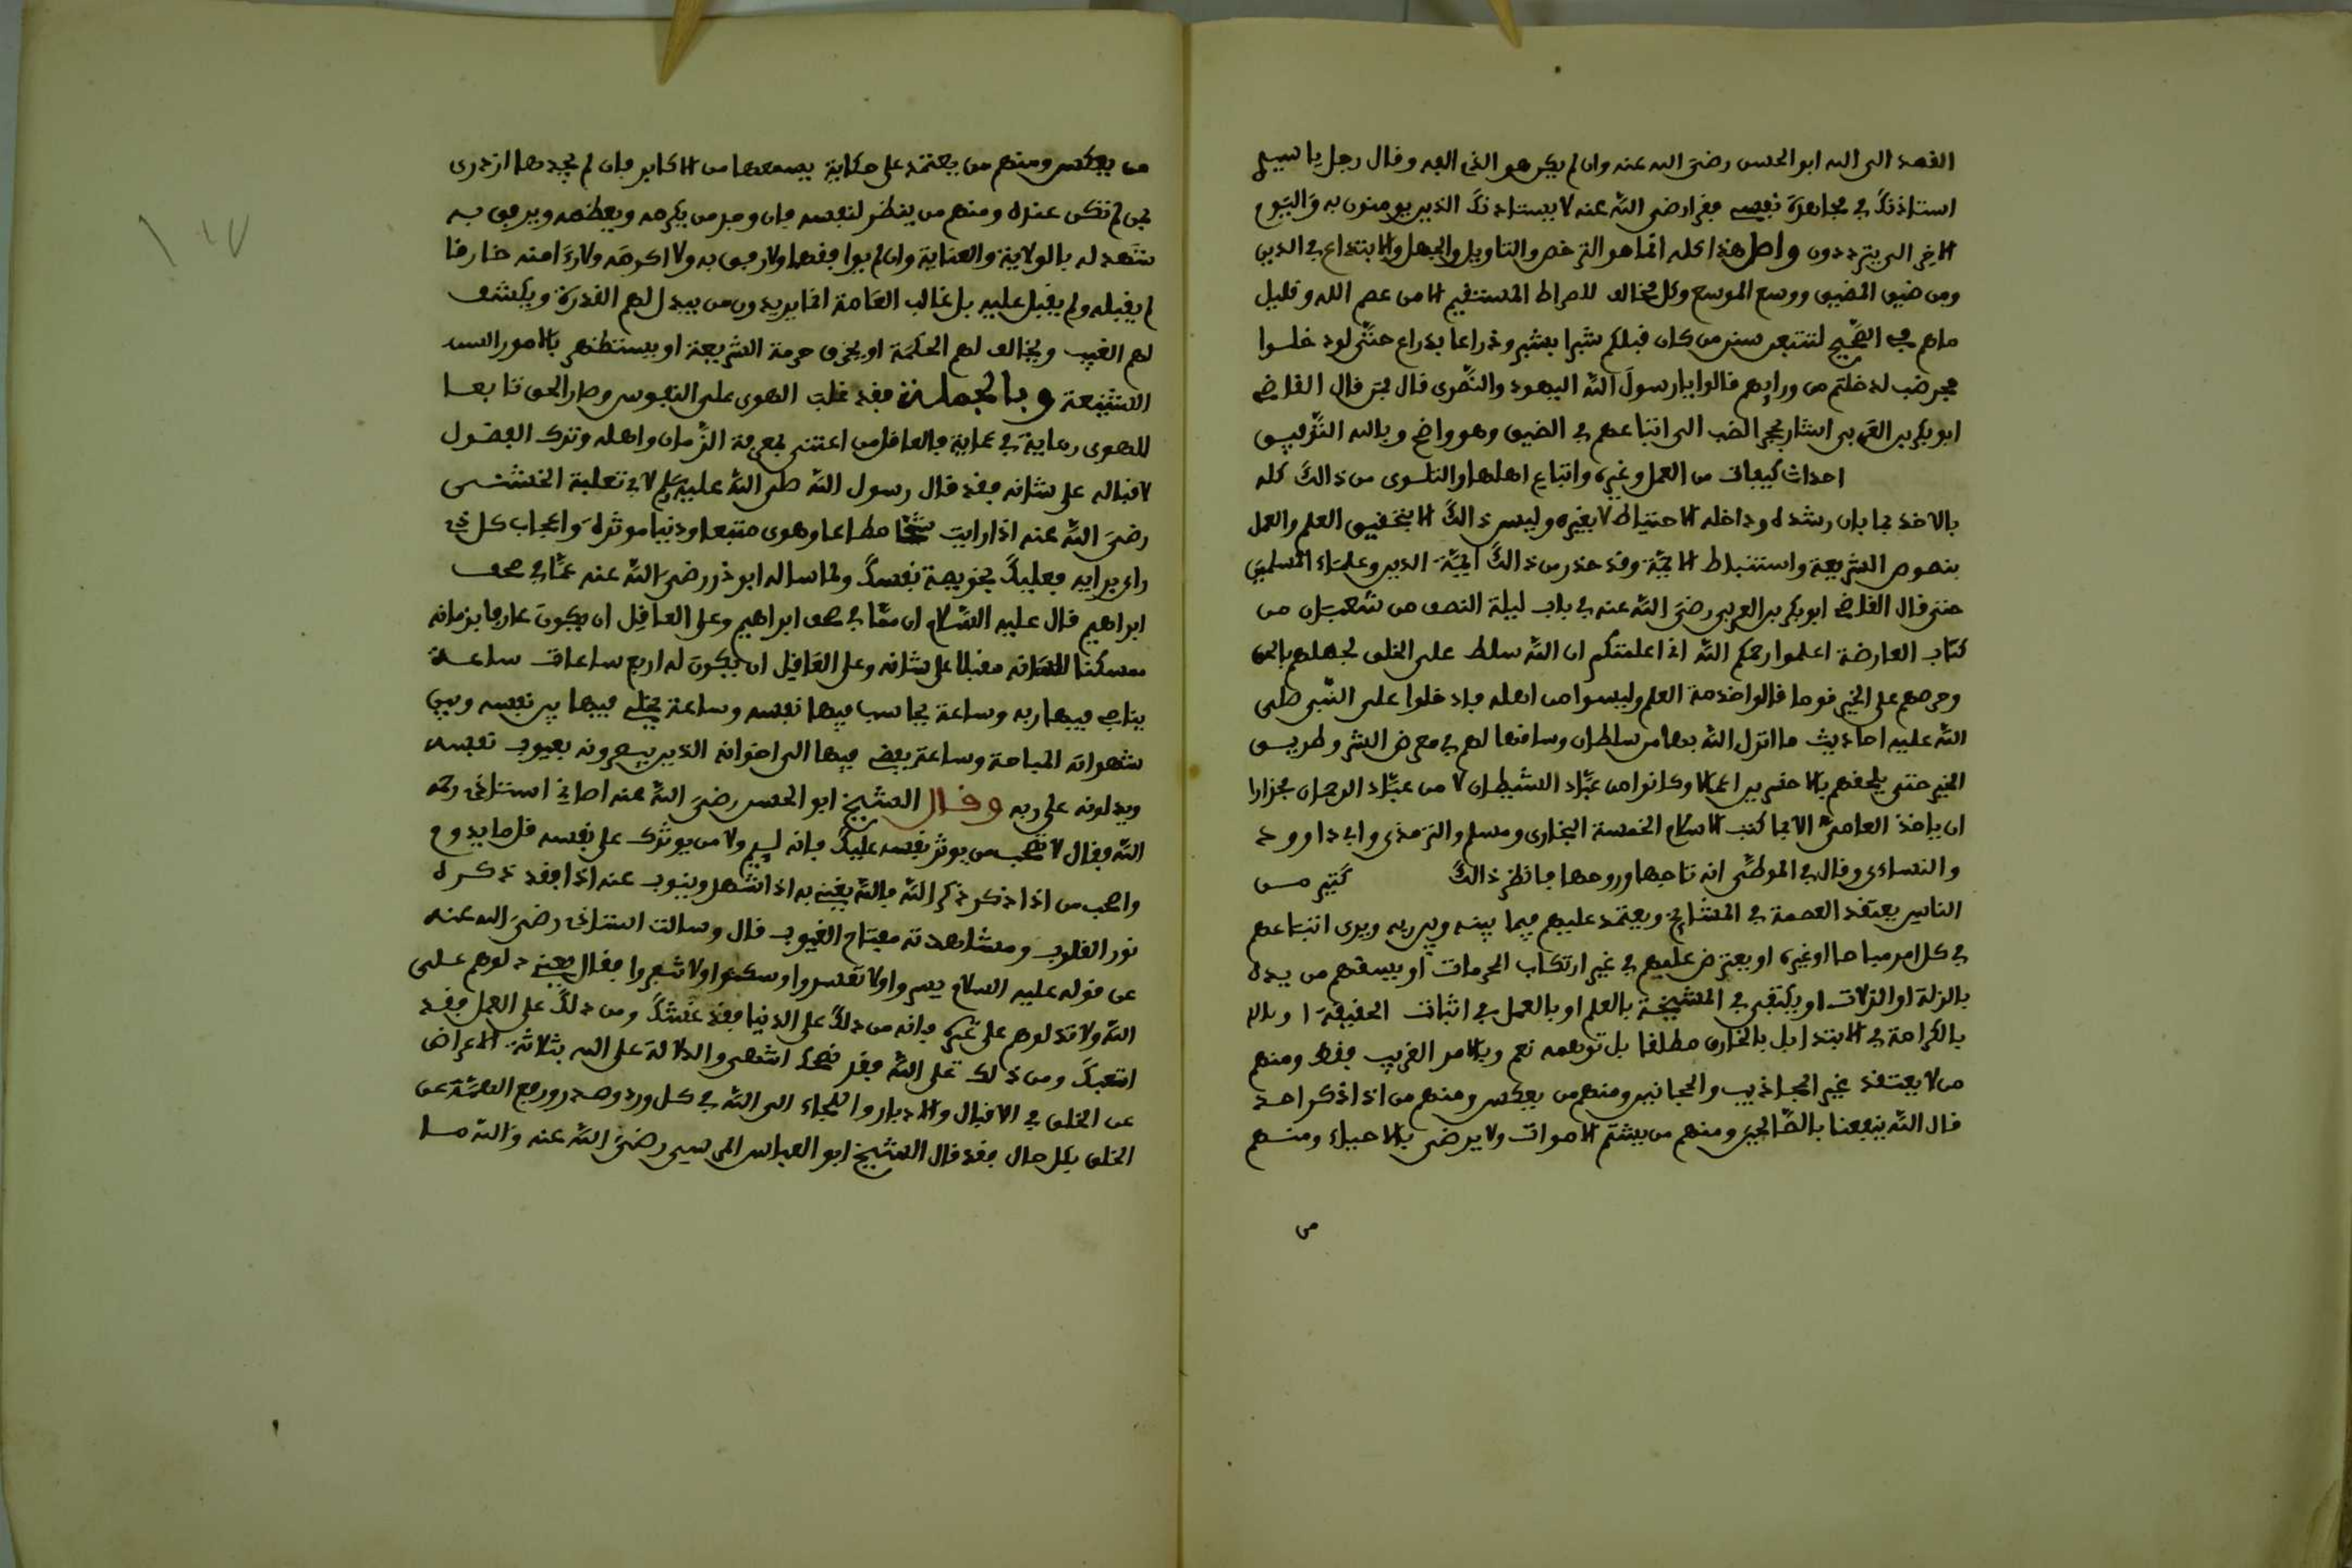 القصد الى الله ابو الحسن رضي الله عنه وان لم يكن هو الذي الفه وقال رجل يا سيدي
استاذنك في مجاهدة نفسي فقرا رضي الله عنه لا يستاذنك الذين يومنون به واليوم
الاخر الى يترددون واصل هذا كله انما هو الترخص والتاويل والجهل والابتداع في الدين
ومن ضيق المضيق ووسع الموسع وكل مخالف للصراط المستقيم الا من عصم الله وقليل
ما هم في الصحيح لتتبعن سنن من كان قبلكم شبرا بشبر وذراعا بذراع حتى لو دخلوا
جحر ضب لدخلتم من ورايهم قالوا يا رسول الله اليهود والنصرى قال فمن قال القاضي
ابو بكر بن العربي اشار بجحر الضب الى اتباعهم في الضيق وهو واضح وبالله التوفيق
احداث كيفيات من العمل وغيره واتباع اهلها والتلوى من ذالك كله
بالاخذ بما بان رشده وداخله الاحتياط لا بغيره وليس ذالك الا بتحقيق العلم والعمل
بنصوص الشريعة واستنباط الايمة وقد حذر من ذالك ايمة الدين وعلماء المسلمين
حتى قال القاضي ابو بكر بن العربي رضي الله عنه في باب ليلة النصف من شعبان من
كتاب العارضة اعلموا رحمكم الله اذا علمتكم ان الله سلط على الخلق لجهلهم بالحق
وحرصهم على الخير قوما قالوا خدمة العلم وليسوا من اهله فادخلوا على النبي صلى
الله عليه احاديث ما انزل الله بها من سلطان وساقوها لهم في معرض البشر وطريق
الخير حتى يلحقهم بالاخسرين اعمالا وكانوا من عباد الشيطان لا من عباد الرحمان فحذارا
ان ياخذ العامي الا بما كتب الاسلام الخمسة البخارى ومسلم والترمذى وابى داوود
والنساءى وقال في الموطى انه تاجها وروحها فانظر ذالك كثير من
الناس يعتقد العصمة في المشايخ ويعتمد عليهم فيما بينه وبين ربه ويرى اتباعهم
في كل امر مباحا او غيره او يعترض عليهم في غير ارتكاب الحرمات او يسقطهم من يده
بالزلة او الزلات او يكتفى في المشيخة بالعلم او بالعمل في اثبات الحقيقة او بالا
بالكرامة في الابتدا بل بالخارق مطلقا بل توهمه نعم وبالامر الغريب فقط ومنهم
من لا يعتقد غير المجاذيب والمجانين ومنهم من يعكس ومنهم من اذا ذكر احد
قال الله ينفعنا بالصالحين ومنهم من يشتم الاموات ولا يرضى بالاحياء ومنهم
من
من يعكس ومنهم من يعتمد على حكاية يسمعها من الاكابر فان لم يجدها ازدرى
بمن لم تكن عنده ومنهم من ينظر لنفسه فان وجد من يكرمه ويعظمه ويرفق به
شهد له بالولاية والعناية وان لم يوافقها ولا رفق به ولا اكرمه ولا رءا منه خارقا
لم يقبله ولم يقبل عليه بل غالب العامة انما يريدون من يبدل لهم القدرة ويكشف
لهم الغيب ويخالف لهم الحكمة او يخرق حرمة الشريعة او يستظهر بالامور
الشنيعة وبالجملة فقد غلب الهوى على النفوس وصار الحق تابعا
للهوى رعاية في عماية فالعاقل من اعتنى بمعرفة الزمان واهله وترك الفضول
لاقباله على شانه فقد قال رسول الله صلى الله عليه وسلم لابي ثعلبة الخشنى
رضي الله عنه اذا رايت شحا مطاعا وهوى متبعا ودنيا موثرة واعجاب كل ذي
راي برايه فعليك بخويصة نفسك ولما ساله ابو ذر رضي الله عنه عما في صحف
ابراهيم قال عليه السلام ان مما في صحف ابراهيم وعلى العاقل ان يكون عارفا بزمانه
ممسكا للسانه مقبلا على شانه وعلى العاقل ان يكون له اربع ساعات ساعة
يناجي فيها ربه وساعة يحاسب فيها نفسه وساعة يخلي فيها بين نفسه وبين
شهواته المباحة وساعة يفضي فيها الى اخوانه الذين يبصرونه بعيوب نفسه
ويدلونه على ربه وقال الشيخ ابو الحسن رضي الله عنه اوصاني استاذى رحمه
الله فقال لا تصحب من يوثر نفسه عليك فانه لييم ولا من يوثرك على نفسه فلما يدوم
واصحب من اذا ذكر ذكر الله فالله يغني به اذا شهد وينوب عنه اذا فقد ذكره
نور القلوب ومشاهدته مفتاح الغيوب قال وسالت استاذى رضي الله عنه
عن قوله عليه السلام يسروا ولا تعسروا وسكنوا ولا تنفروا فقال يعني دلوهم على
الله ولا تدلوهم على غيره فانه من دلك على الدنيا فقد غشك ومن دلك على العمل فقد
اتعبك ومن دلك على الله فقد نصحك انتهى والدلالة على الله بثلاثة الاعراض
عن الخلق في الاقبال والادبار واللجاء الى الله في كل ورد وصدر ورفع الهمة عن
الخلق بكل حال فقد قال الشيخ ابو العباس المرسى رضي الله عنه والله ما